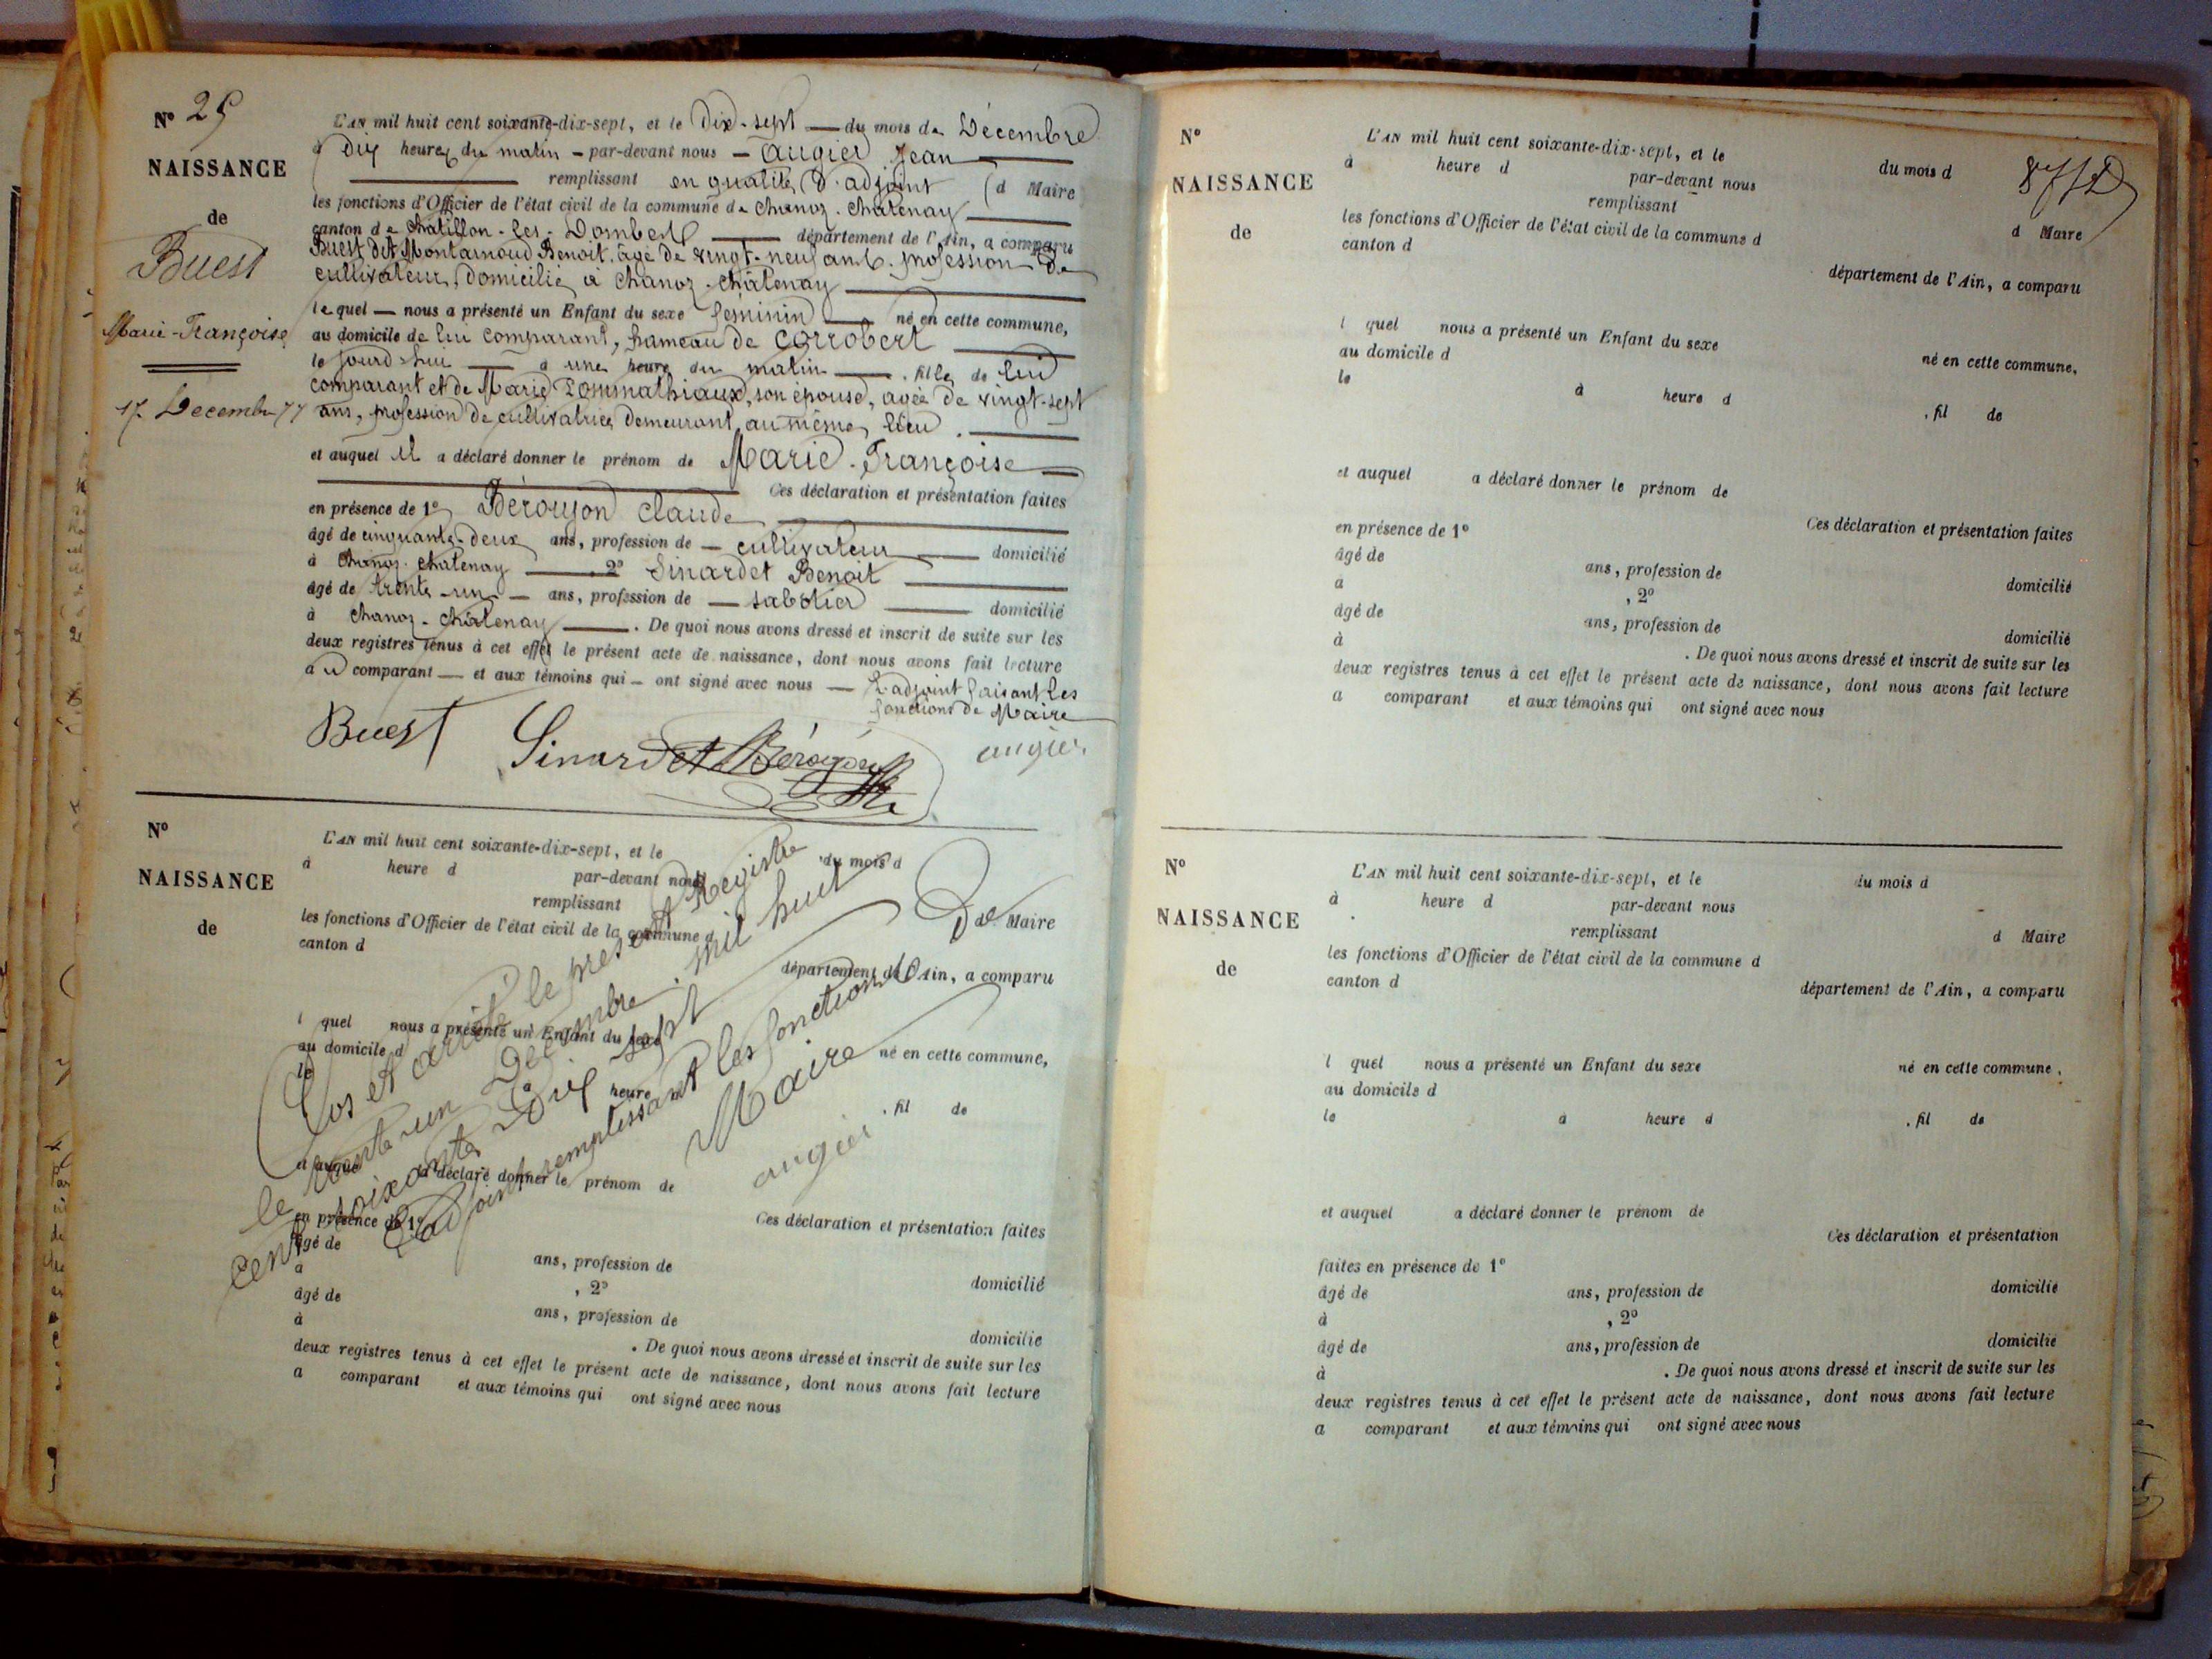 N° 25
NAISSANCE
de
Buest
Marie-Françoise
17 Decembre 77
L'AN mil huit cent soixante-dix-sept, et le Dix-sept du mois de Décembre
à Dix heures du matin - par-devant nous - augier Jean
remplissant en qualité d'adjoint (d Maire
les fonctions d'Officier de l'état civil de la commune de Chanoz-Chatenay
canton de Chatillon-les-Dombes département de l'Ain, a comparu
Buest dit Montarnoud Benoit, âgé de vingt-neuf ans, profession de
cultivateur, domicilié à Chanoz-Châtenay
lequel nous a présenté un Enfant du sexe féminin né en cette commune,
au domicile de lui comparant, hameau de Corrobert
le jourd'hui à une heure du matin, fille de lui
comparant et de Marie Pommathiaux, son épouse, agée de vingt-sept
ans, profession de cultivatrice demeurant au même lieu.
et auquel il a déclaré donner le prénom de Marie-Françoise
Ces déclaration et présentation faites
en présence de 1° Béroujon Claude
âgé de cinquante-deux ans, profession de - cultivateur domicilié
à Chanoz-Chatenay 2° Sinardet Benoit
âgé de trente-un ans, profession de - sabotier domicilié
à Chanoz-Châtenay. De quoi nous avons dressé et inscrit de suite sur les
deux registres tenus à cet effet le présent acte de naissance, dont nous avons fait lecture
au comparant et aux témoins qui ont signé avec nous L'adjoint faisant les
fonctions de Maire
Buest Sinardet Béroujon augier
N°
NAISSANCE
de
L'AN mil huit cent soixante-dix-sept, et le du mois d
à heure d par-devant nous
remplissant d Maire
les fonctions d'Officier de l'état civil de la commune d
canton d
département de l'Ain, a comparu
l quel nous a présenté un Enfant du sexe
au domicile d
né en cette commune,
le à heure d
, fil de
et auquel a déclaré donner le prénom de
Ces déclaration et présentation faites
en présence de 1°
âgé de ans, profession de domicilié
à , 2°
âgé de ans, profession de domicilié
à . De quoi nous avons dressé et inscrit de suite sur les
deux registres tenus à cet effet le présent acte de naissance, dont nous avons fait lecture
a comparant et aux témoins qui ont signé avec nous
Clos et arrêté le present Registre
le trente-un Decembre mil huit
cent soixante Dix sept
L'adjoint remplissant les fonctions de
Maire
augier
N°
NAISSANCE
de
L'AN mil huit cent soixante-dix-sept, et le du mois d
à heure d par-devant nous
remplissant d Maire
les fonctions d'Officier de l'état civil de la commune d
canton d
département de l'Ain, a comparu
l quel nous a présenté un Enfant du sexe
au domicile d né en cette commune,
le à heure d , fil de
et auquel a déclaré donner le prénom de
Ces déclaration et présentation faites
en présence de 1°
âgé de ans, profession de domicilié
à , 2°
âgé de ans, profession de domicilié
à . De quoi nous avons dressé et inscrit de suite sur les
deux registres tenus à cet effet le présent acte de naissance, dont nous avons fait lecture
a comparant et aux témoins qui ont signé avec nous
N°
NAISSANCE
de
L'AN mil huit cent soixante-dix-sept, et le du mois d
à heure d par-devant nous
remplissant d Maire
les fonctions d'Officier de l'état civil de la commune d
canton d département de l'Ain, a comparu
l quel nous a présenté un Enfant du sexe né en cette commune,
au domicile d
le à heure d , fil de
et auquel a déclaré donner le prénom de
Ces déclaration et présentation
faites en présence de 1°
âgé de ans, profession de domicilié
à , 2°
âgé de ans, profession de domicilié
à . De quoi nous avons dressé et inscrit de suite sur les
deux registres tenus à cet effet le présent acte de naissance, dont nous avons fait lecture
a comparant et aux témoins qui ont signé avec nous